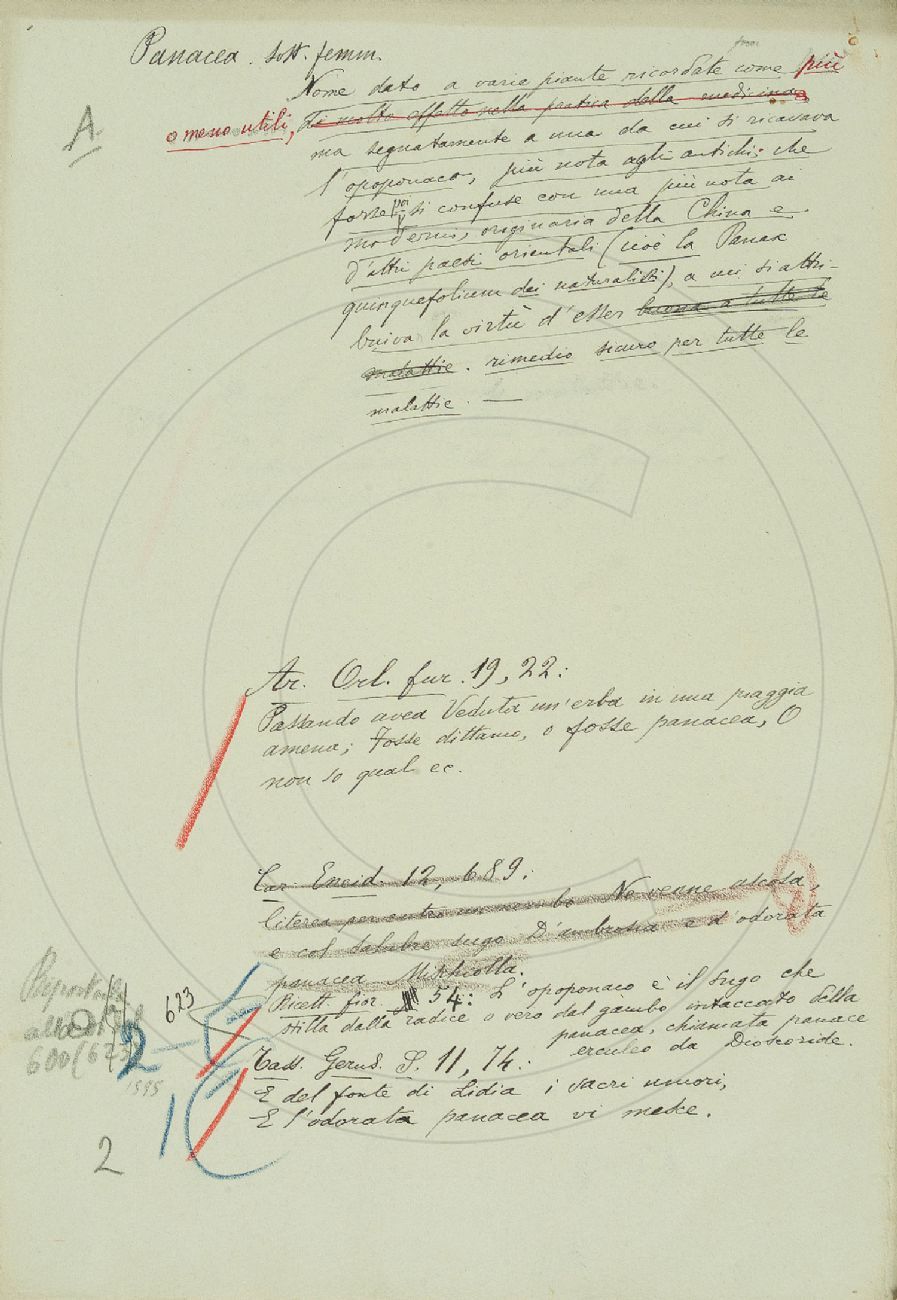 Panacea. Sost. femm.
Nome dato a varie piante ricordate come più
o meno utili, di molto effetto nella pratica della medicina,
ma segnatamente a una da cui si ricavava
l'opoponaco, più nota agli antichi, che
forse poi si confuse con una più nota ai
moderni, originaria della China e
d'altri paesi orientali (cioè la Panax
quinquefolium dei naturalisti), a cui si attri-
buiva la virtù d'esser buona a tutte le
malattie. rimedio sicuro per tutte le
malattie. —
A
Ar. Orl. fur. 19, 22:
Passando avea veduta un'erba in una piaggia
amena; Fosse dittamo, o fosse panacea, O
non so qual ec.
Car. Eneid. 12, 689:
Venne ascosa,
e col salubre sugo D'ambrosia e d'odorata
panacea Mischiolla.
Ricett. fior. 54: L'opoponaco è il sugo che
stilla dalla radice o vero dal gambo intaccato della
panacea, chiamata panace
erculeo da Dioscoride.
623
Tass. Gerus. S. 11, 74:
E del fonte di Lidia i sacri umori,
E l'odorata panacea vi mesce.
600 (623)
1595
2
1
2